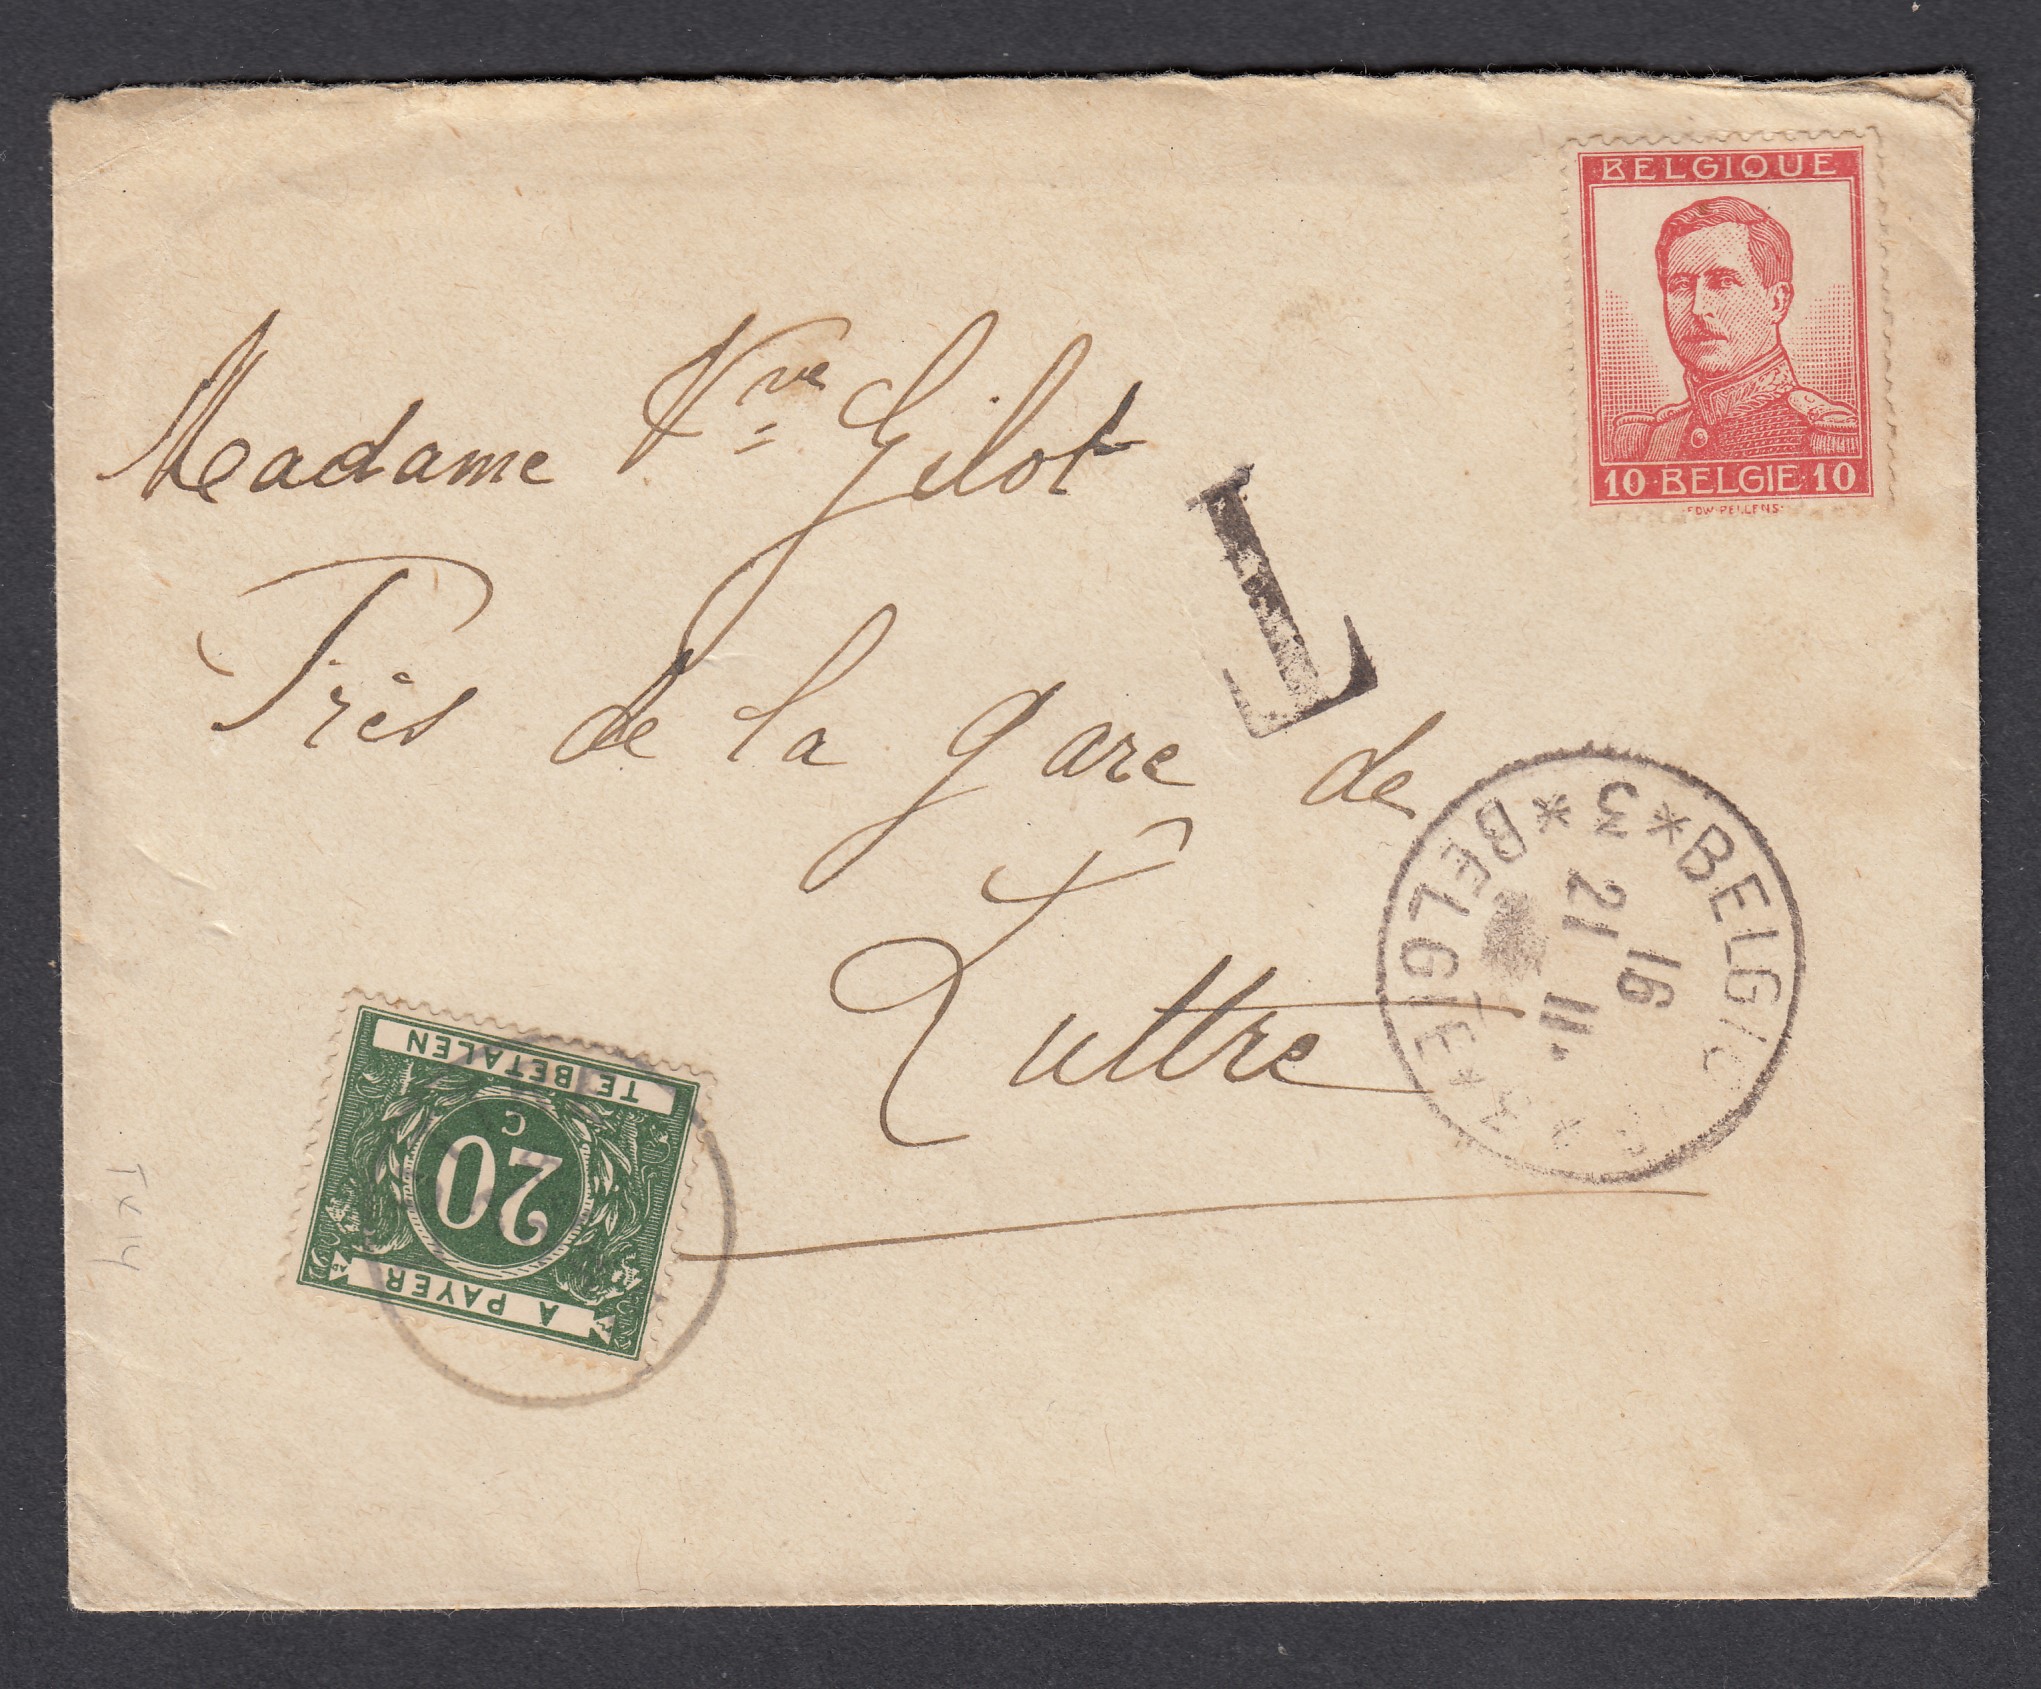 BELGIQUE
10 · BELGIE · 10
·EDW·PELLENS·
Madame Vve Gilot
Près de la gare de
Luttre
T
*BELGIQUE
16
21 11
*BELGIË*
3
TE BETALEN
20
C
A PAYER